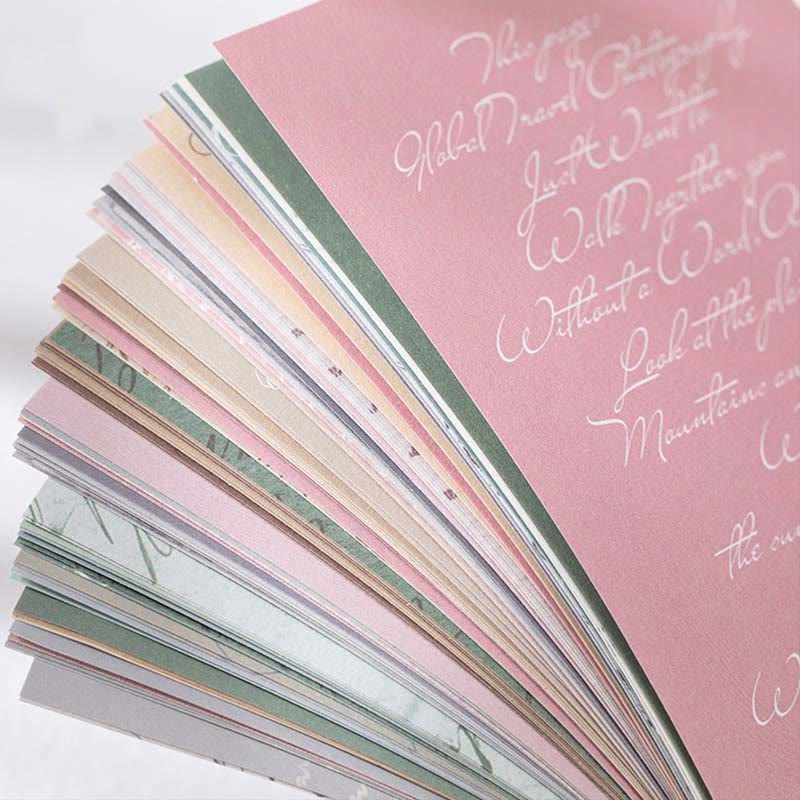 This page:
Global Travel Photography,
Just Want to
Walk Together you
Without a Word,
Look at the
Mountains
the